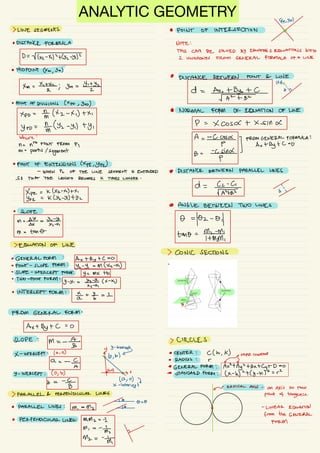 ANALYTIC GEOMETRY
> LINE SEGMENTS
• DISTANCE FORMULA
D = √(x₂-x₁)²+(y₂-y₁)²
• MIDPOINT (xm, ym)
xm = x₁+x₂/2 , ym = y₁+y₂/2
• POINT OF DIVISION (xPD, yPD)
xPD = n/m (x₂-x₁)+x₁
yPD = n/m (y₂-y₁)+y₁
where:
n = nth POINT FROM P₁
m = parts / segment
• POINT OF EXTENSION (xPE, yPE)
- WHEN P₂ OF THE LINE SEGMENT IS EXTENDED
SO THAT THE LENGTH BECOMES K TIMES LONGER.
xPE = K(x₂-x₁)+x₁
yPE = K(y₂-y₁)+y₁
• SLOPE
m = Δy/Δx = y₂-y₁/x₂-x₁
m = tan θ
> EQUATION OF LINE
• GENERAL FORM: Ax+By+C=0
• POINT-SLOPE FORM: y-y₁ = m(x-x₁)
• SLOPE-INTERCEPT FORM: y = mx+b
• TWO-POINT FORM: y-y₁ = y₂-y₁/x₂-x₁ (x-x₁)
• INTERCEPT FORM: x/a + y/b = 1
y-intercept
(0, b)
(a, 0)
x-intercept
FROM GENERAL FORM:
Ax+By+C = 0
SLOPE: m = -A/B
X-INTERCEPT: (a, 0) a = -C/A
Y-INTERCEPT: (0, b) b = -C/B
> PARALLEL & PERPENDICULAR LINES
• PARALLEL LINES: m₁ = m₂
• PERPENDICULAR LINES: m₁m₂ = -1
m₁ = -1/m₂
m₂ = -1/m₁
* POINT OF INTERSECTION
NOTE:
THIS CAN BE SOLVED BY
2 UNKNOWN FROM GENERAL FORMULA OF A LINE
* DISTANCE BETWEEN POINT & LINE
d = Ax₁+By₁+C/√A²+B²
* NORMAL FORM OF EQUATION OF LINE
P = x cos α + y sin α
A = -C cos α/P
B = -C sin α/P
FROM GENERAL FORMULA:
Ax+By+C=0
* DISTANCE BETWEEN PARALLEL LINES
d = C₂-C₁/√A²+B²
* ANGLE BETWEEN TWO LINES
θ = |θ₂-θ₁|
tan θ = m₂-m₁/1+m₁m₂
> CONIC SECTIONS
> CIRCLES
• CENTER: C(h, k)
• RADIUS: r
• GENERAL FORM:
• STANDARD FORM: (x-h)²+(y-k)²=r²
RADICAL AXIS - an axis to two
point of tangents
- LINEAR EQUATION
(use the GENERAL
FORM)